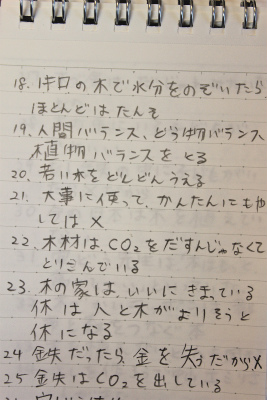 18. 1キロの木で水分をのぞいたら
ほとんどはたんそ
19. 人間バランス、どう物バランス
植物バランスをとる
20. 若い木をどんどんうえる
21. 大事に使って、かんたんにもや
しては×
22. 木材は、CO2をだすんじゃなくて
とりこんでいる
23. 木の家は、いいにきまっている
休は人と木がよりそうと
休になる
24 鉄だったら、金を失うだから×
25 鉄はCO2を出している